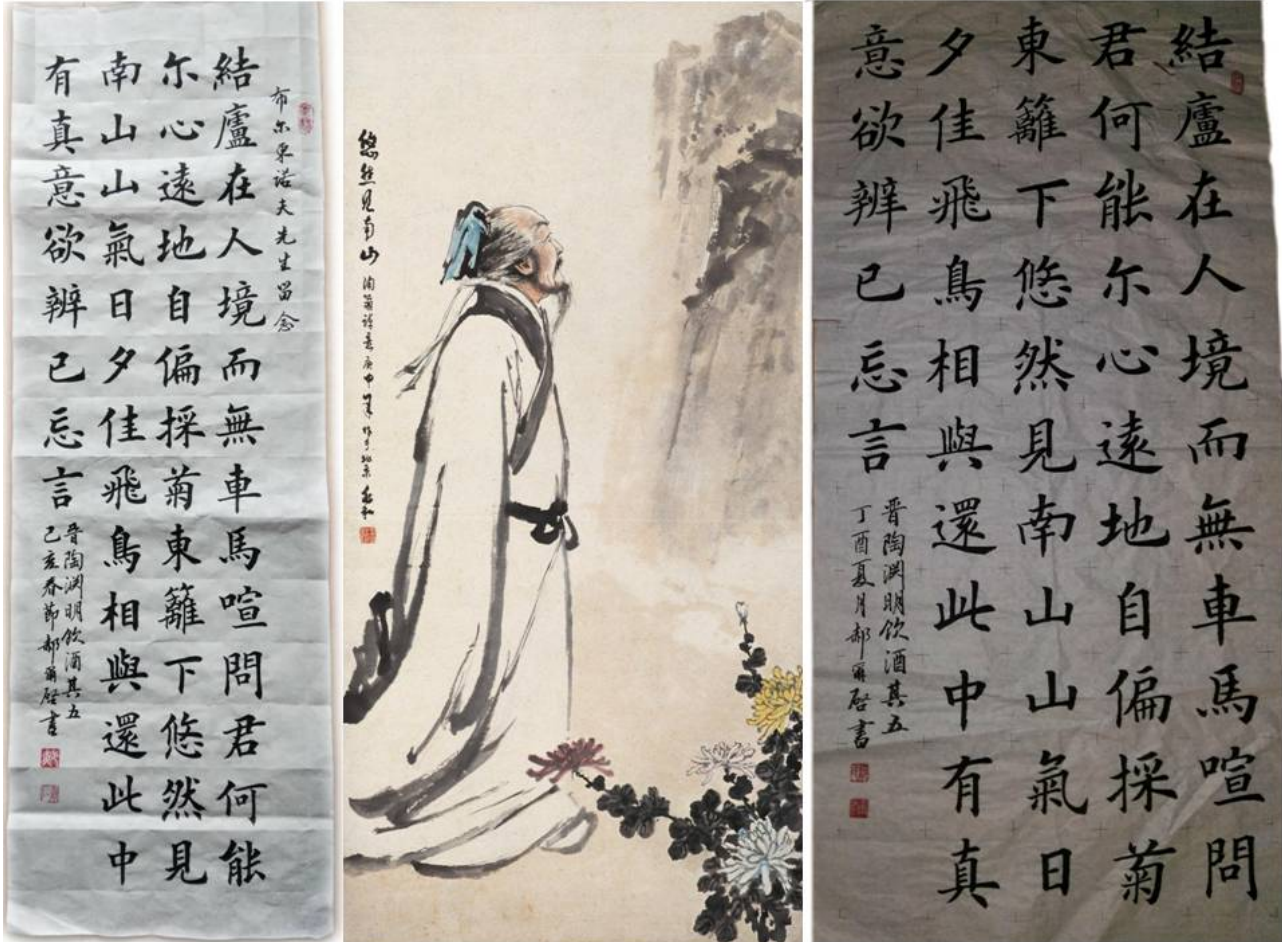 布尔東诺夫先生留念
結廬在人境而無車馬喧問君何能
尔心遠地自偏採菊東籬下悠然見
南山山氣日夕佳飛鳥相與還此中
有真意欲辨已忘言
晋陶渊明飲酒其五
己亥春節郝爾啓書
悠然見南山 陶翁詩意庚申年作于北京
結廬在人境而無車馬喧問
君何能尔心遠地自偏採菊
東籬下悠然見南山山氣日
夕佳飛鳥相與還此中有真
意欲辨已忘言
晋陶渊明飲酒其五
丁酉夏月郝爾啓書